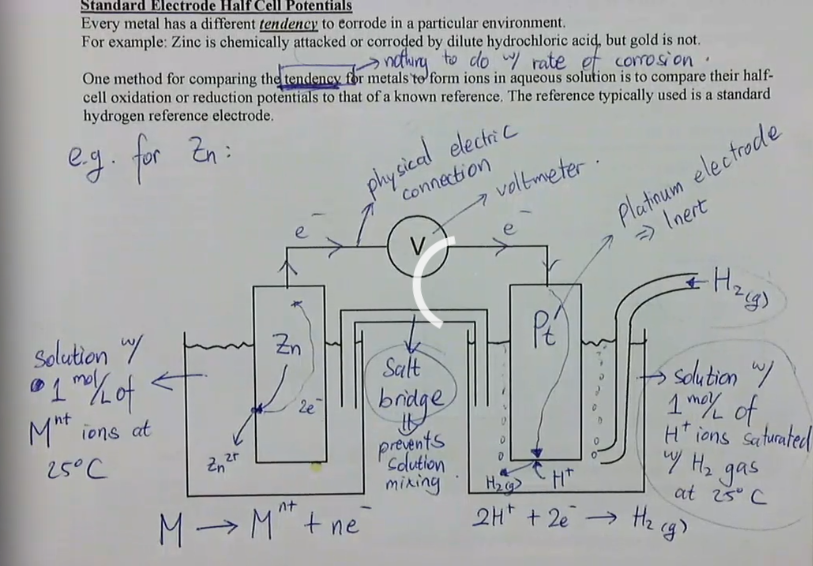 Standard Electrode Half Cell Potentials
Every metal has a different tendency to corrode in a particular environment.
For example: Zinc is chemically attacked or corroded by dilute hydrochloric acid, but gold is not.
nothing to do w/ rate of corrosion.
One method for comparing the tendency for metals to form ions in aqueous solution is to compare their half-
cell oxidation or reduction potentials to that of a known reference. The reference typically used is a standard
hydrogen reference electrode.
e.g. for Zn:
physical electric
connection
voltmeter.
Platinum electrode
⇒ Inert
e⁻
V
e⁻
H₂(g)
Zn
Pt
Solution w/
1 mol/L of
Mⁿ⁺ ions at
25°C
Salt
bridge
⇓
prevents
solution
mixing
solution w/
1 mol/L of
H⁺ ions saturated
w/ H₂ gas
at 25°C
2e⁻
Zn²⁺
H₂(g)
H⁺
M → Mⁿ⁺ + ne⁻
2H⁺ + 2e⁻ → H₂(g)